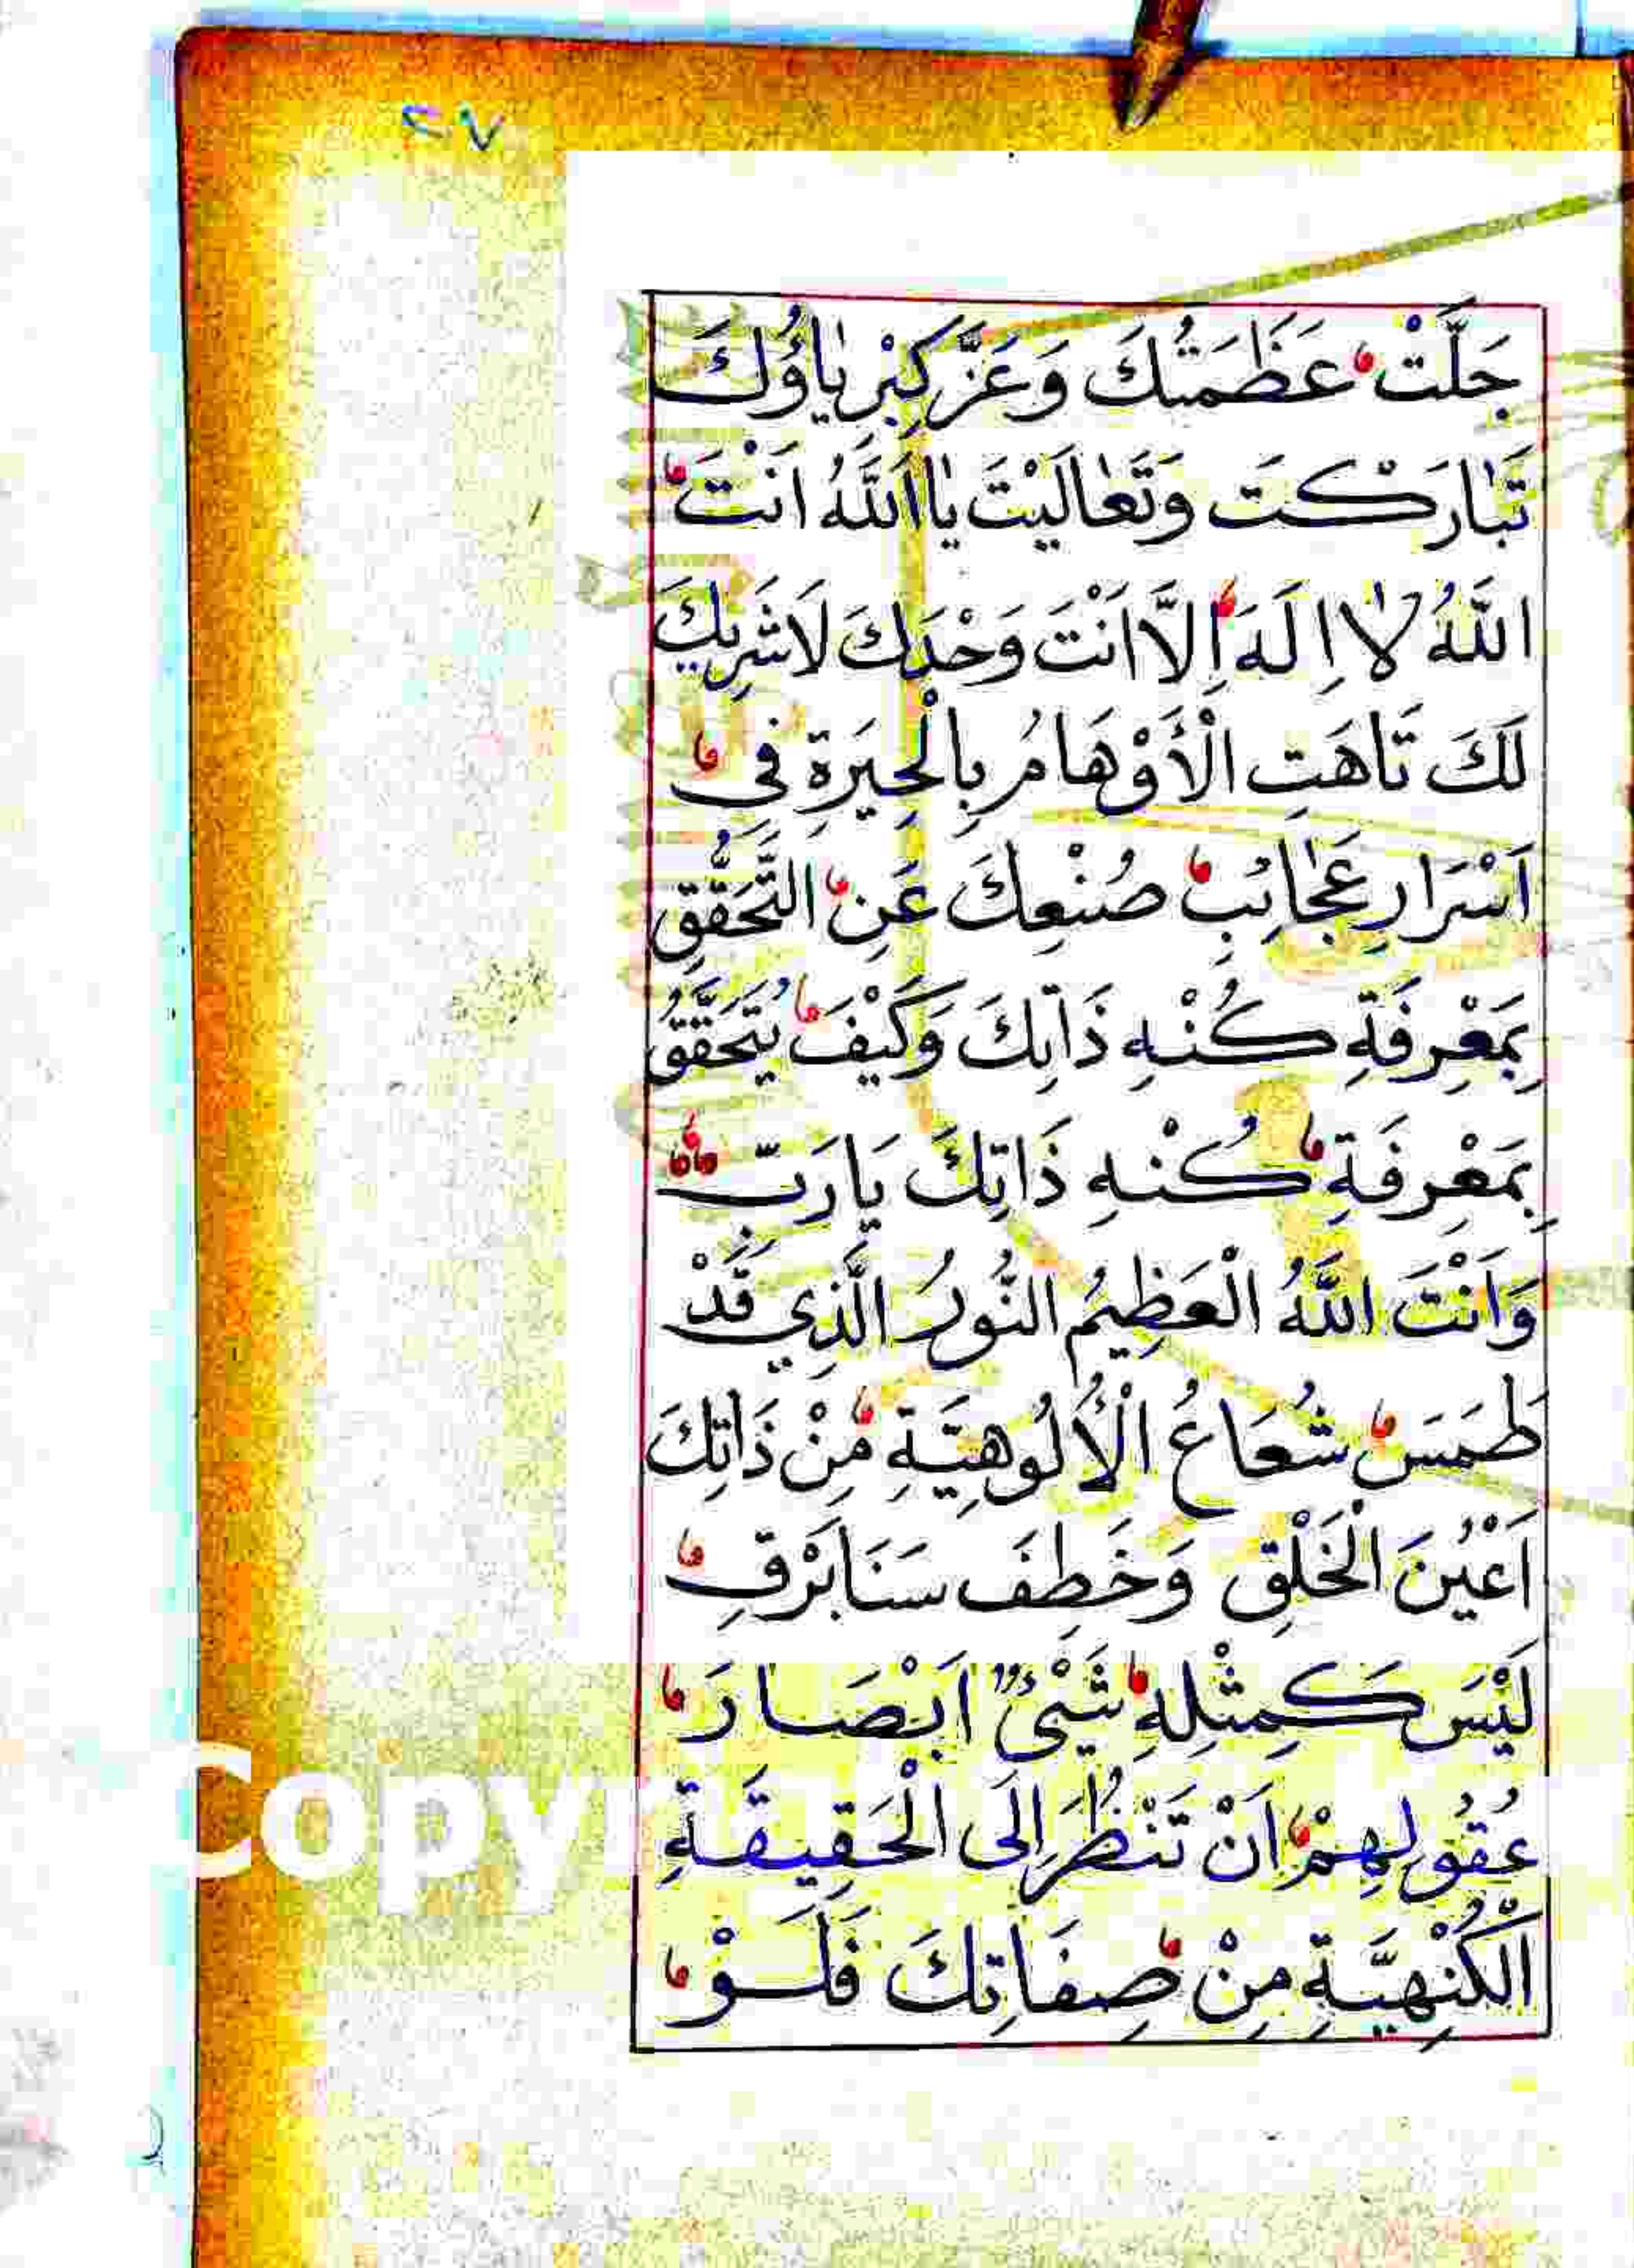 ٢٧
جَلَّتْ عَظَمَتُكَ وَعَزَّ كِبْرِيٰاؤُكَ
تَبٰارَكْتَ وَتَعٰالَيْتَ يٰا اَللّٰهُ اَنْتَ
اللّٰهُ لٰا اِلَهَ اِلَّا اَنْتَ وَحْدَكَ لَا شَرِيكَ
لَكَ تَاهَتِ الْأَوْهَامُ بِالْحِيَرَةِ فِي
اَسْرَارِ عَجٰائِبِ صُنْعِكَ عَنِ التَّحَقُّقِ
بِمَعْرِفَةِ كُنْهِ ذَاتِكَ وَكَيْفَ يُتَحَقَّقُ
بِمَعْرِفَةِ كُنْهِ ذَاتِكَ يَا رَبِّ
وَاَنْتَ اللّٰهُ الْعَظِيمُ النُّورُ الَّذِي قَدْ
طَمَسَ شُعَاعُ الْأُلُوهِيَّةِ مِنْ ذَاتِكَ
اَعْيُنَ الْخَلْقِ وَخَطِفَ سَنَا بَرْقِ
لَيْسَ كَمِثْلِهِ شَيْئٌ اَبْصَارَ
عُقُولِهِمْ اَنْ تَنْظُرَ اِلَى الْحَقِيقَةِ
الْكُنْهِيَّةِ مِنْ صِفَاتِكَ فَلَوْ
Copy